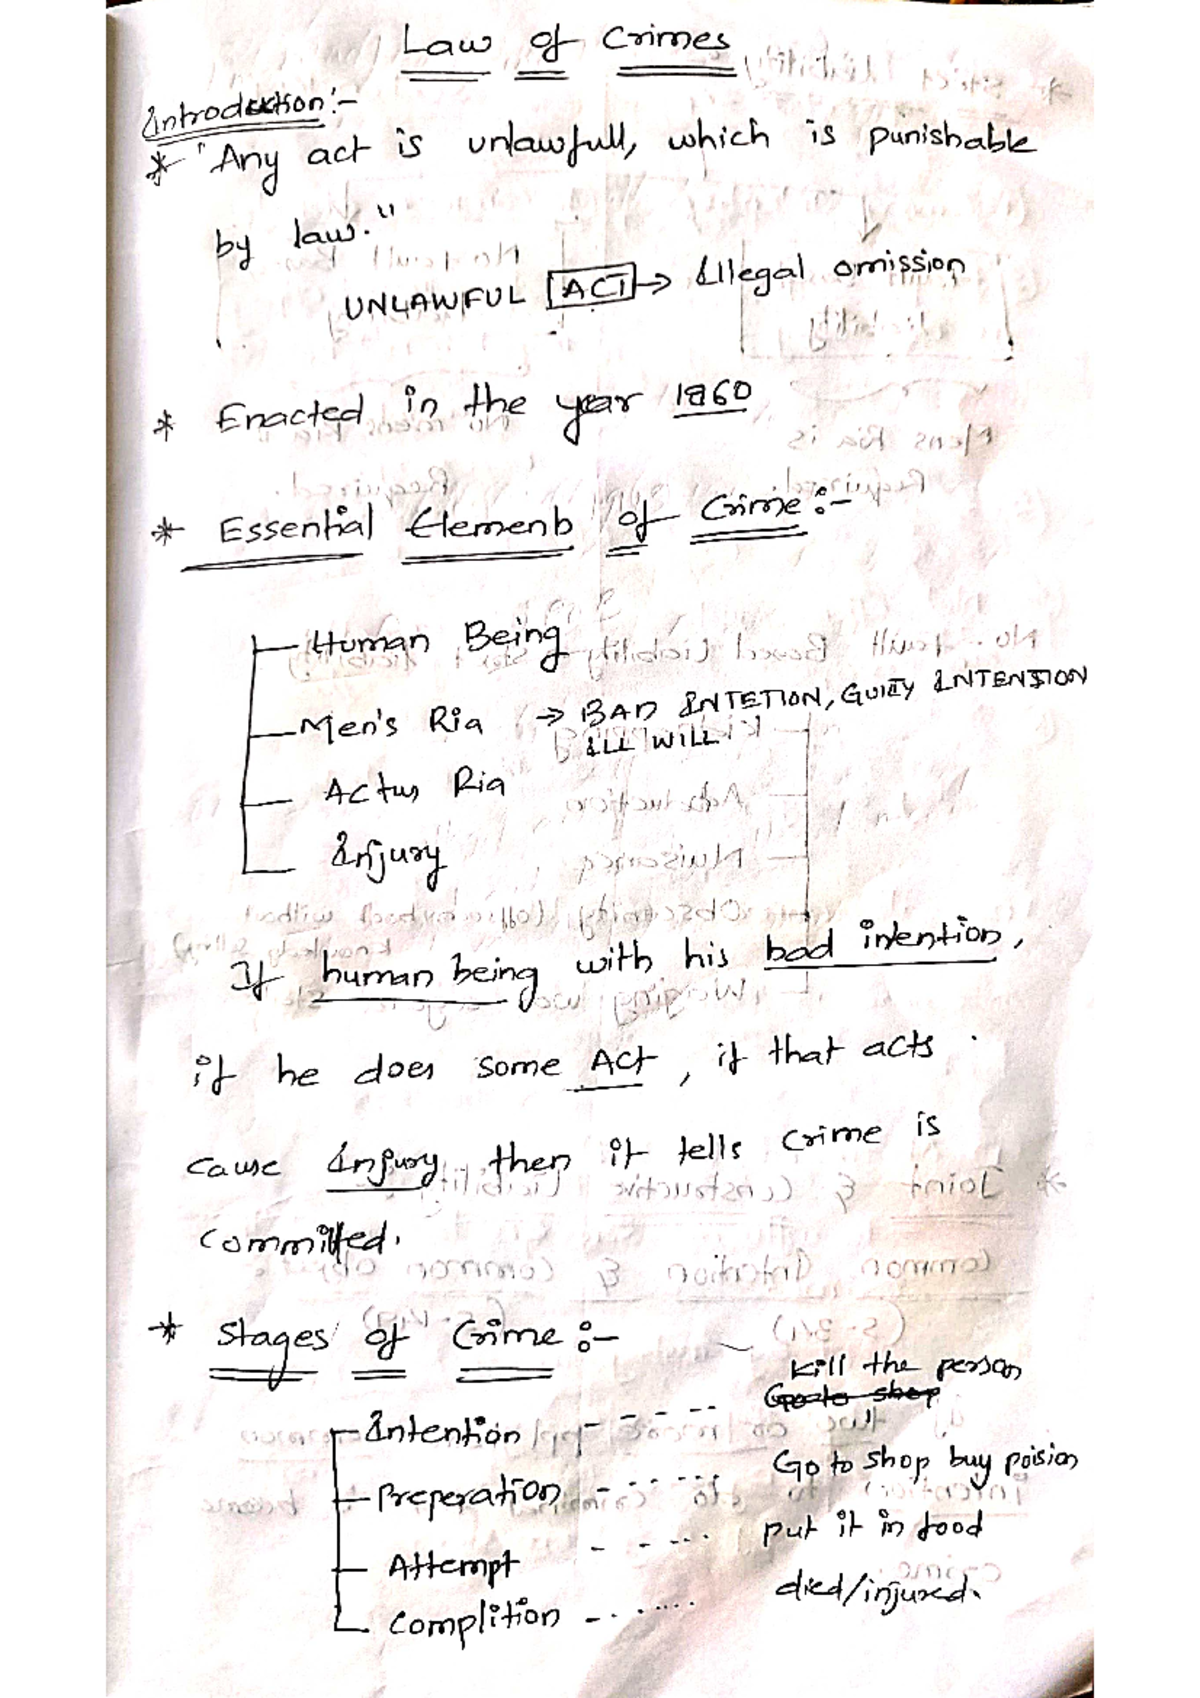 Law of Crimes
Introduction:-
* "Any act is unlawfull, which is punishable
by law."
UNLAWFUL ACT → Illegal omission
* Enacted in the year 1860
* Essential Elements of Crime:-
Human Being
Men's Ria → BAD INTETION, GUILTY INTENSION
ILL WILL
Actus Ria
Injury
If human being with his bad intention,
if he does some Act, if that acts
cause Injury then it tells crime is
committed.
* Stages of Crime:-
Kill the person
Go to shop
Intention - - - - --
Preperation - - - - - - Go to shop buy poision
Attempt - - - - - - put it in food
Complition - - - - - - died/injured.